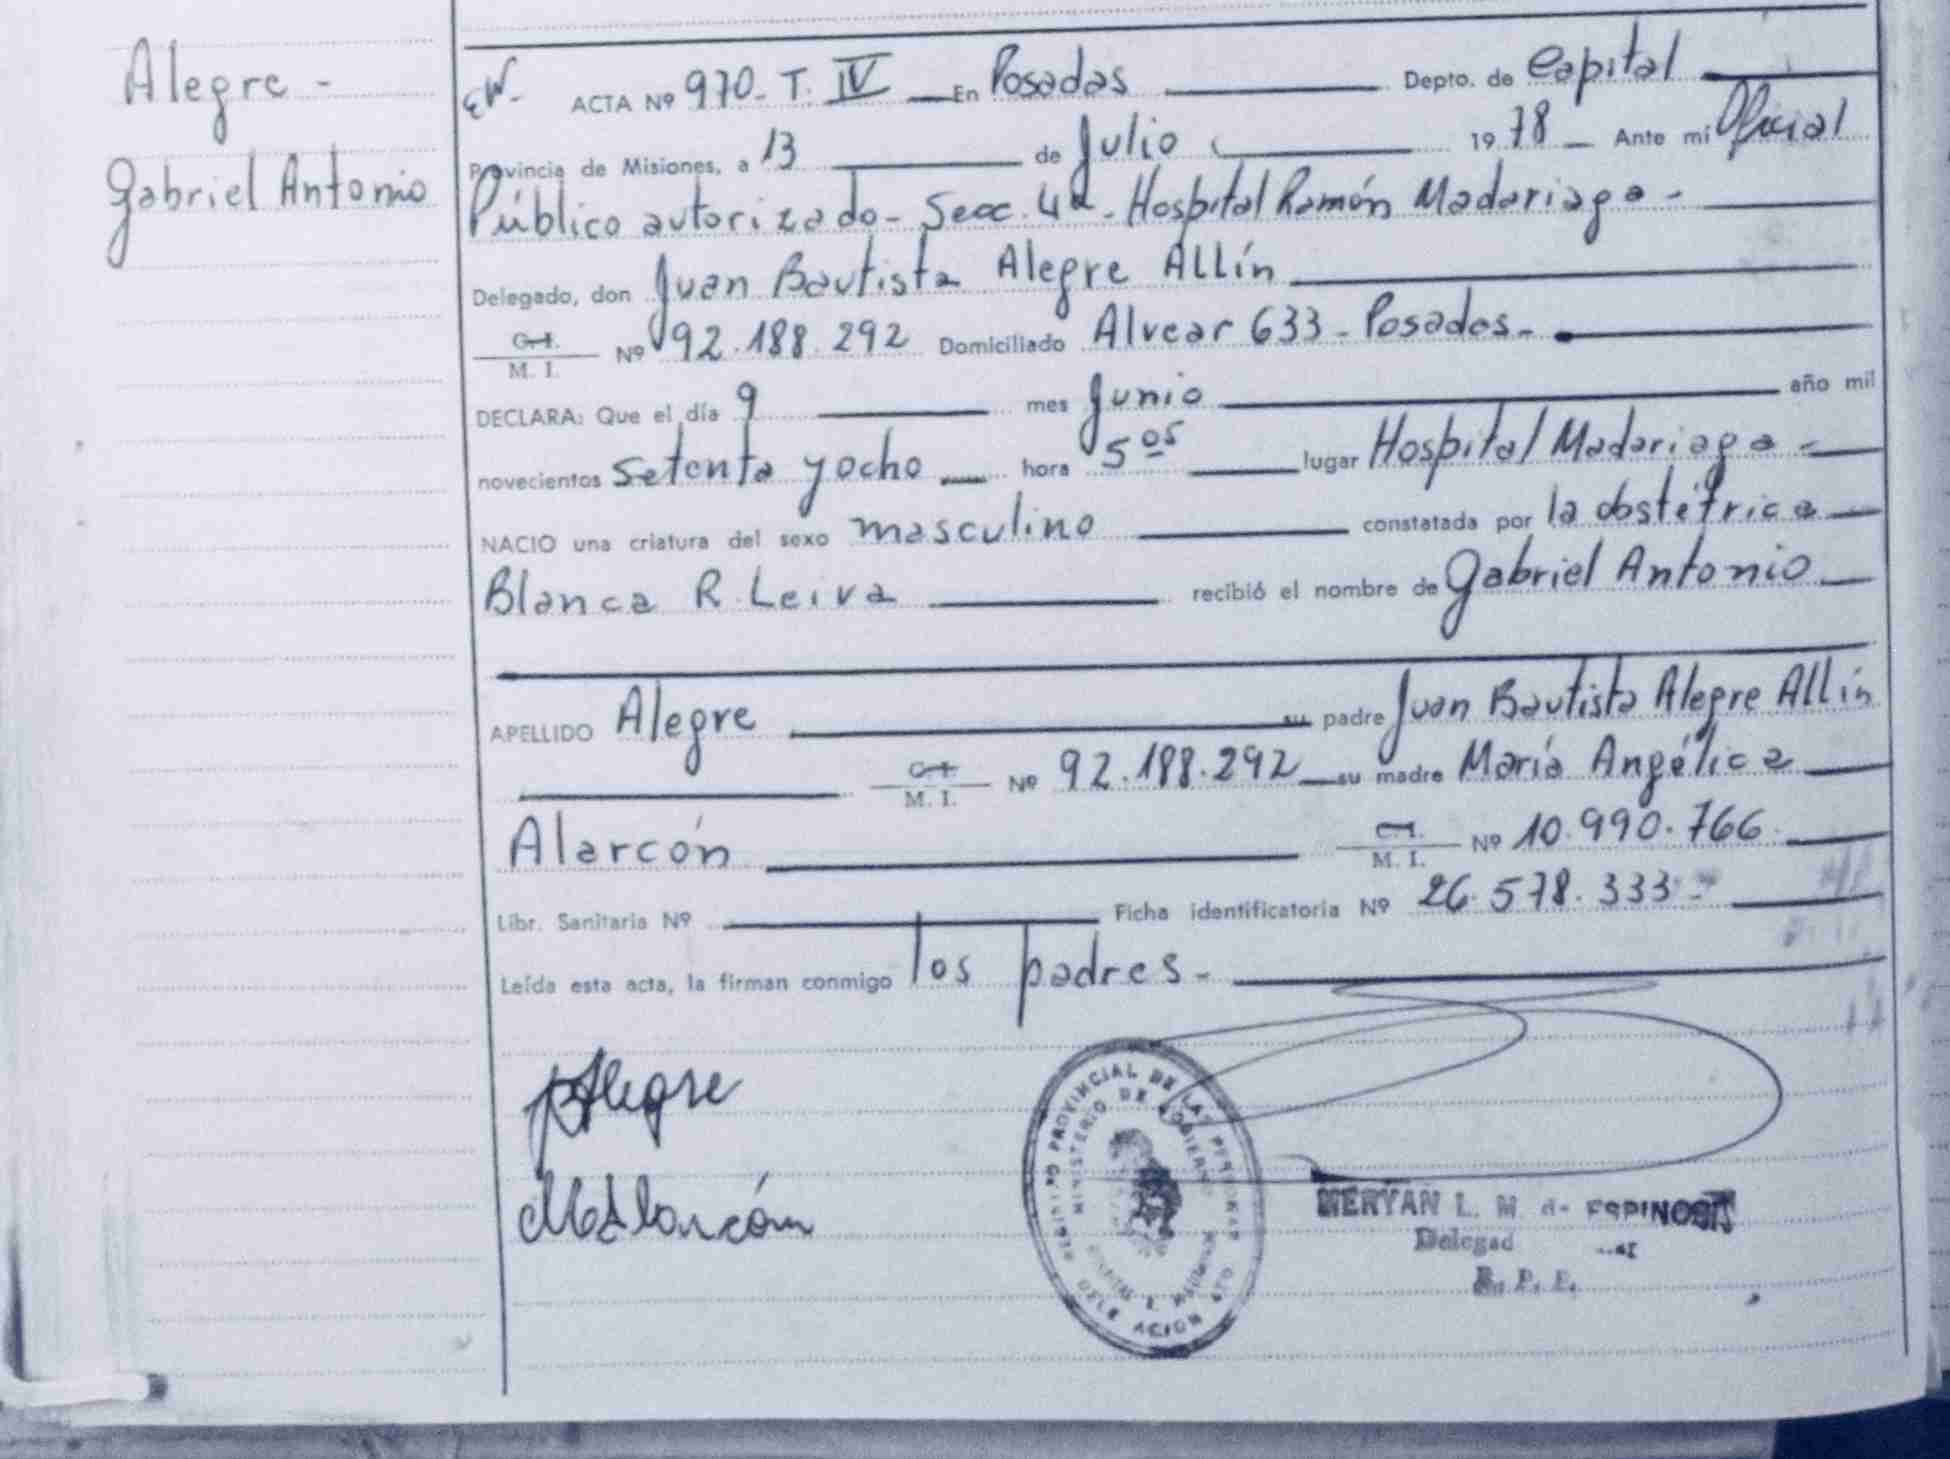 Alegre -
Gabriel Antonio
ACTA Nº 970 - T. IV En Posadas Depto. de Capital
Provincia de Misiones, a 13 de Julio 1978 - Ante mi Oficial
Público autorizado - Secc. 4a - Hospital Ramón Madariaga -
Delegado, don Juan Bautista Alegre Allín
C. I.
M. I. Nº 92.188.292 Domiciliado Alvear 633 - Posadas -
DECLARA: Que el día 9 mes Junio año mil
novecientos setenta y ocho hora 5 05 lugar Hospital Madariaga -
NACIO una criatura del sexo masculino constatada por la obstétrica
Blanca R. Leiva recibió el nombre de Gabriel Antonio
APELLIDO Alegre su padre Juan Bautista Alegre Allín
C. I.
M. I. Nº 92.188.292 su madre María Angélica
Alarcón C. I.
M. I. Nº 10.990.766
Libr. Sanitaria Nº Ficha identificatoria Nº 26.578.333 -
Leída esta acta, la firman conmigo los padres -
Alegre
Alarcón
REGISTRO PROVINCIAL DE LAS PERSONAS
MINISTERIO DE GOBIERNO
DELEGACION
MERYAN L. M. de ESPINOSA
R. P. P.